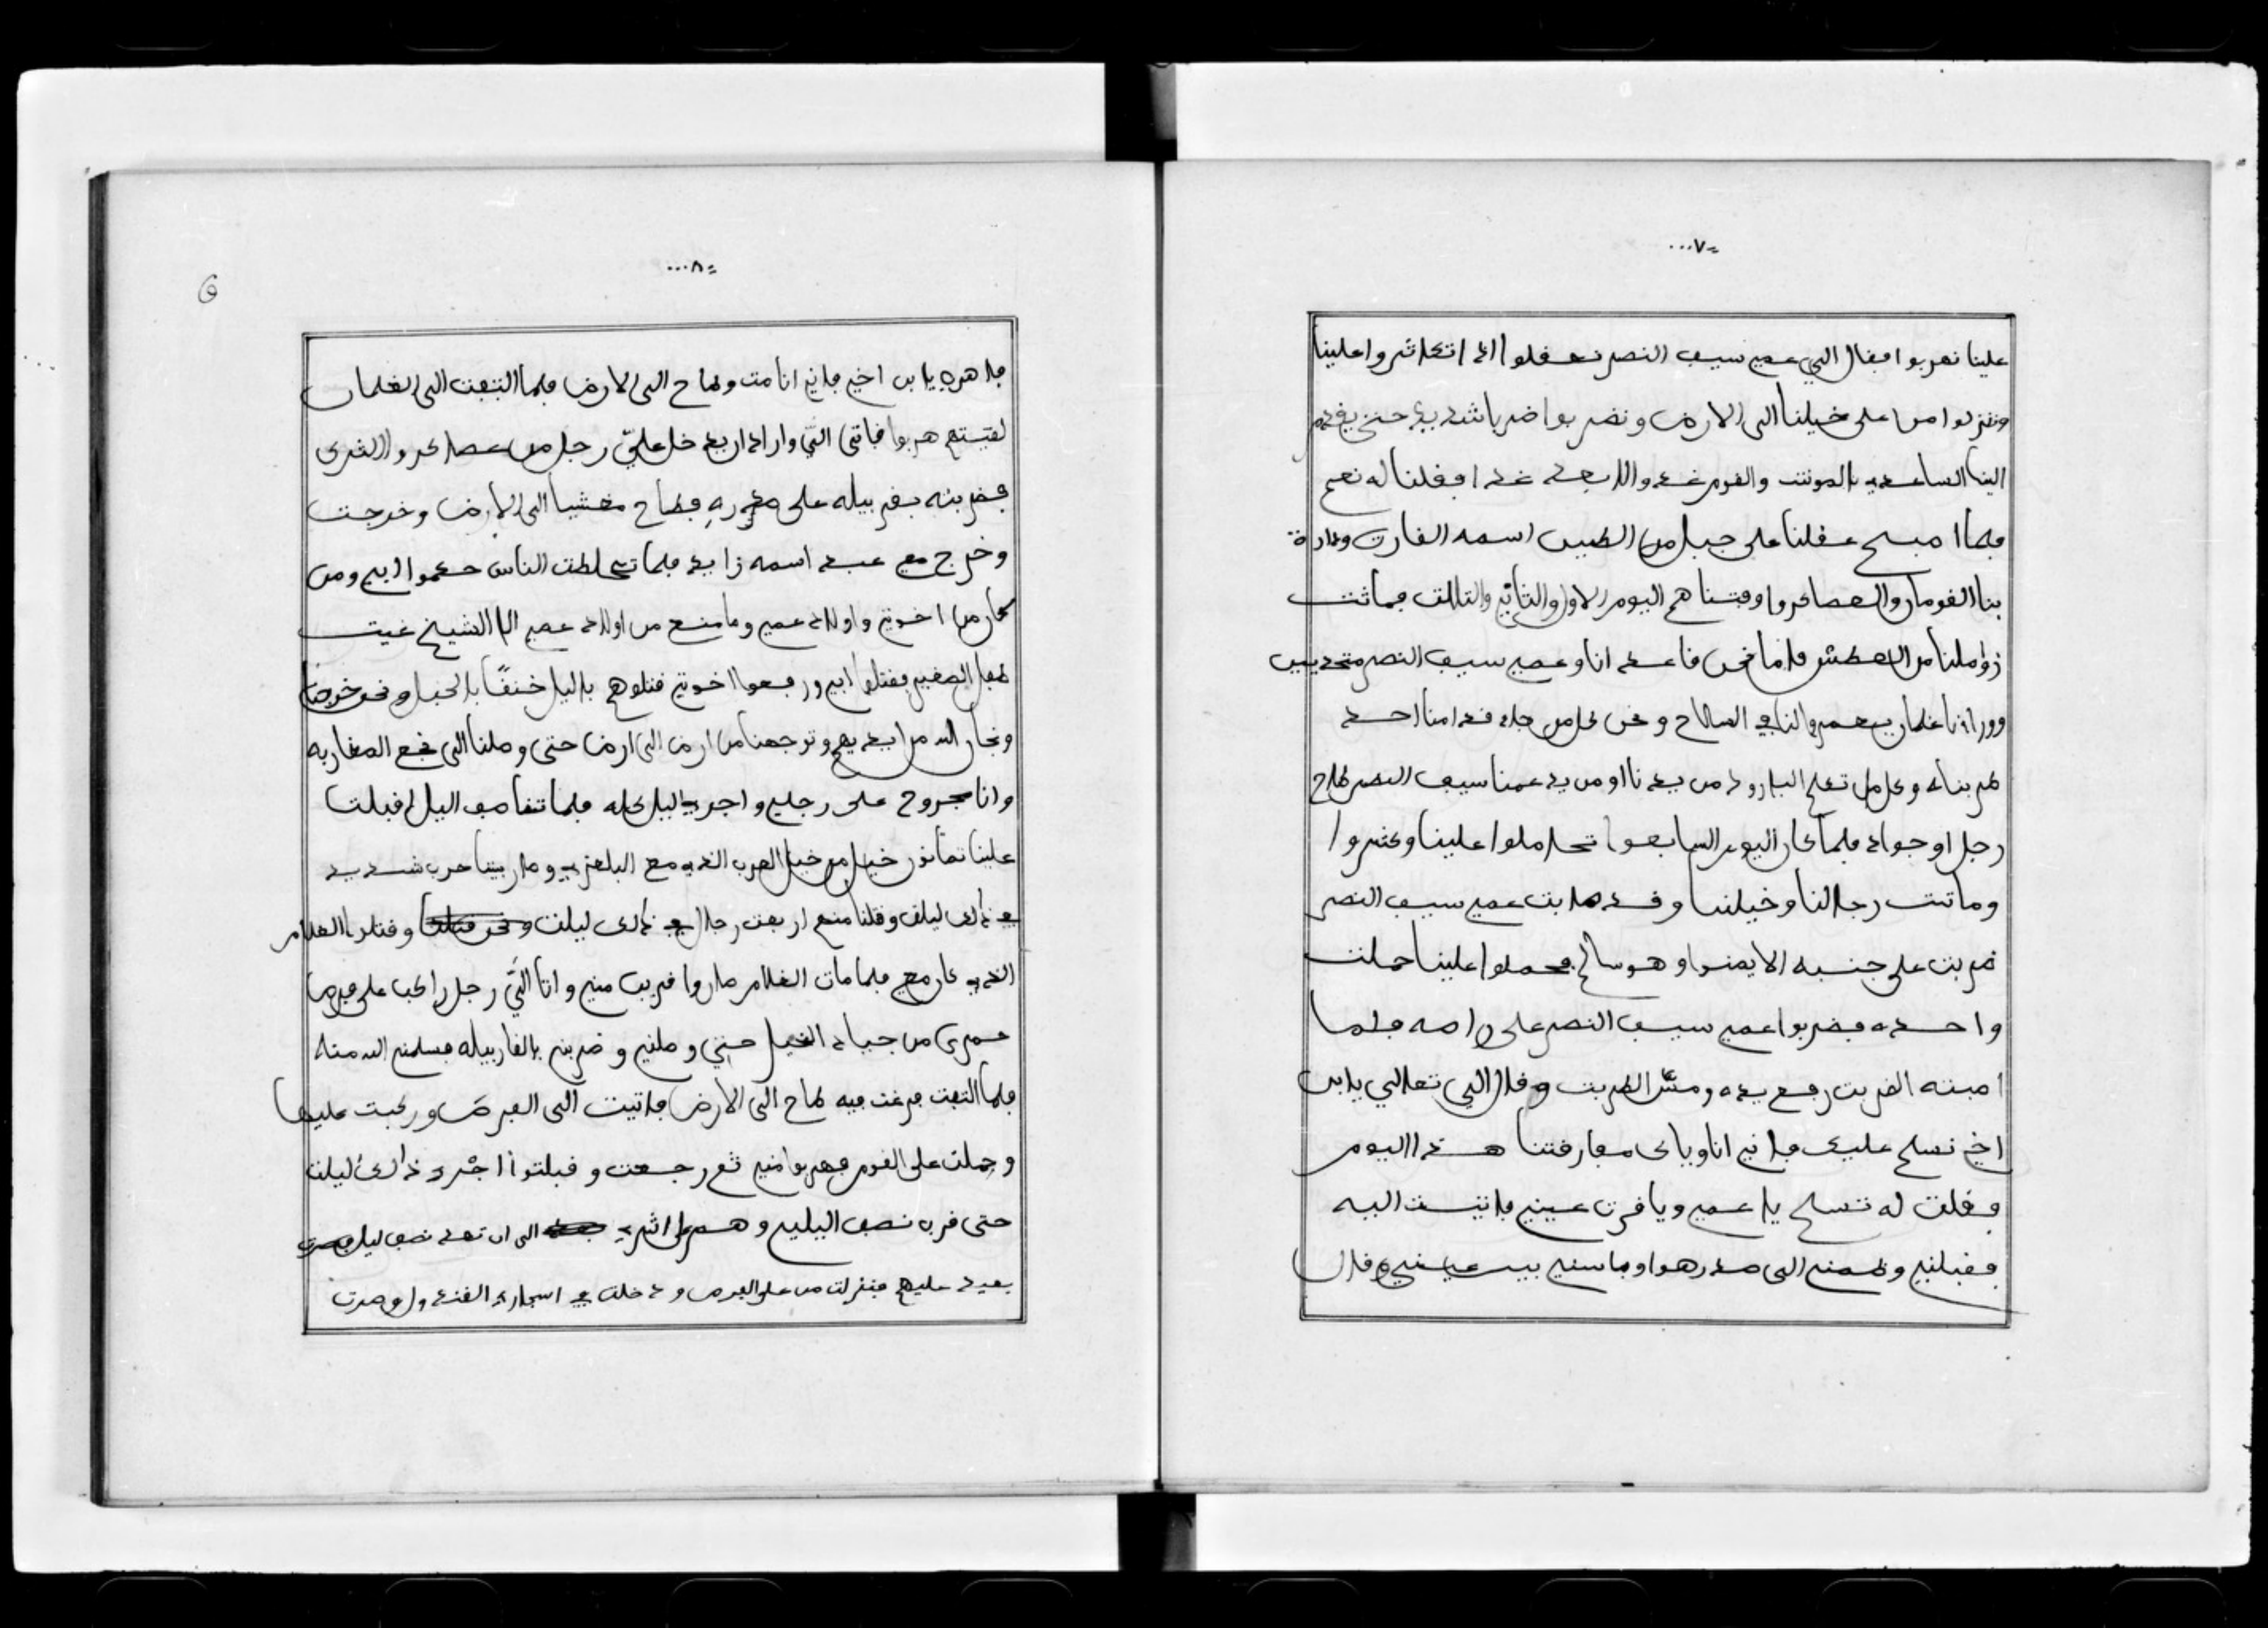 =٧...
علينا نهربوا فقال الي عمي سيف النصر نعقلوا اذا اتكاثروا علينا
وننزلوا من على خيلنا الى الارض ونضربوا ضربا شديد حتى يقدم
الينا الساعديه بالموت والقوم غد والا بعد غد فقلنا له نعم
فلما اصبح عقلنا على جبل من الطين اسمه القارت ودارة
بنا القومان والعصاكر وقتناهم اليوم الاول والثاني والتالت فماتت
زوامنا من العطش فاما نحن قاعد انا وعمي سيف النصر متحدين
وورانا غلمان يعمروا لنا في السلاح ونحن كل من جاء قدامنا احد
ضربناه وكل من تطلع البارود من يدنا او من يد عمنا سيف النصر طاح
رجل او جواد فلما كان اليوم السابعوا تحاملوا علينا وكثروا
وماتت رجالنا وخيلنا وقد صابت عمي سيف النصر
ضربت على جنبه الايمنوا وهو سالم فحملوا علينا حملت
واحده فضربوا عمي سيف النصر على راصه فلما
اصبته الضربت رفع يده ومسّ الضربت وقال الي تعالي يابن
اخي نسلم عليك فاني انا وياك مفارقتنا هذا اليوم
فقلت له تسلم يا عمي ويا قرت عيني فاتيت اليه
فقبلني وضمني الى صدرهوا وباسني بين عينيي وقال
=٨...
فاهره يابن اخي فاني انا مت وطاح الى الارض فلما التفت الى الغلمان
لقيتهم هربوا فاتى اليّ واراد ان يدخل عليّ رجل من عصاكر والترك
فضربته بقربيله على صدره فطاح مغشيا الى الارض وخرجت
وخرج معي عبد اسمه زايد فلما تخالطت الناس حكموا ابي ومن
كان من اخوتي واولاد عمي وما منع من اولاد عمي الا الشيخ غيت
طفل الصغير فقتلوا ابي ورفعوا اخوتي قتلوهم باليل خنقًا بالحبل ونحن خرجنا
ونجان الله من ايديهم وتوجهنا من ارض الى ارض حتى وصلنا الى نجع المغاربه
وانا مجروح على رجلي واجري اليل كله فلما تناصف اليل اقبلت
علينا تمانون خيل من خيل العرب الذي مع البلعزي وصار بيننا حرب شديد
في ذالك ليلت وقتلنا منهم اربعت رجال في ذالك ليلت ونحن قتلنا وقتلوا الغلام
الذي كان معي فلما مات الغلام صاروا قريب مني واتا اليّ رجل راكب على فرص
حمرى من جياد الخيل حتي وصلني وضربني بالقاربيله فسلمني الله منه
فلما التفت فرغت فيه طاح الى الارض فاتيت الى الفرص وركبت عليها
وحملت على القوم فهربوا مني ثم رجعت وقبلتوا اجري ذالك ليلت
حتى قرب نصف اليليي وهم على اثري الى ان تعد نصف ليل فصرت
بعيد عليهم فنزلت من على الفرص ودخلت في اسجارة القند ولو صرت